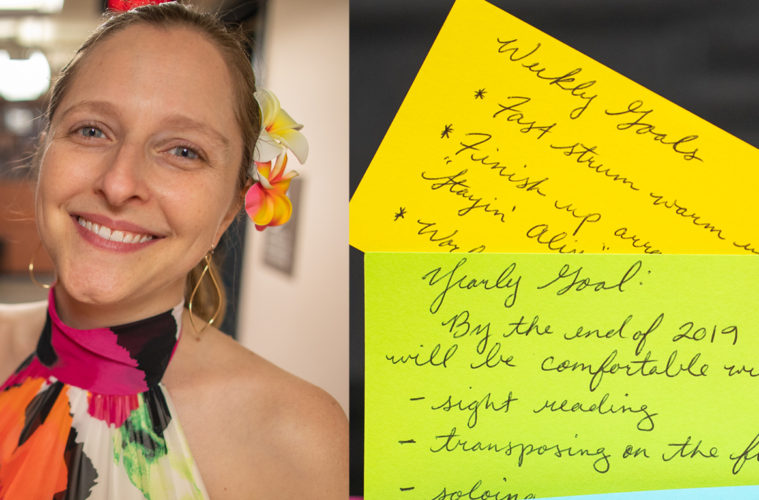 Weekly Goals
* Fast strum warm
* Finish up
"Stayin' Alive"
*
Yearly Goal:
By the end of 2019
will be comfortable
- sight reading
- transposing on the
- soloing